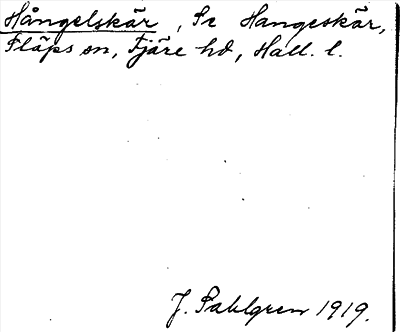 Hångelskär, Se Hangeskär,
Släps sn, Fjäre hd, Hall. l.
J. Sahlgren 1919.